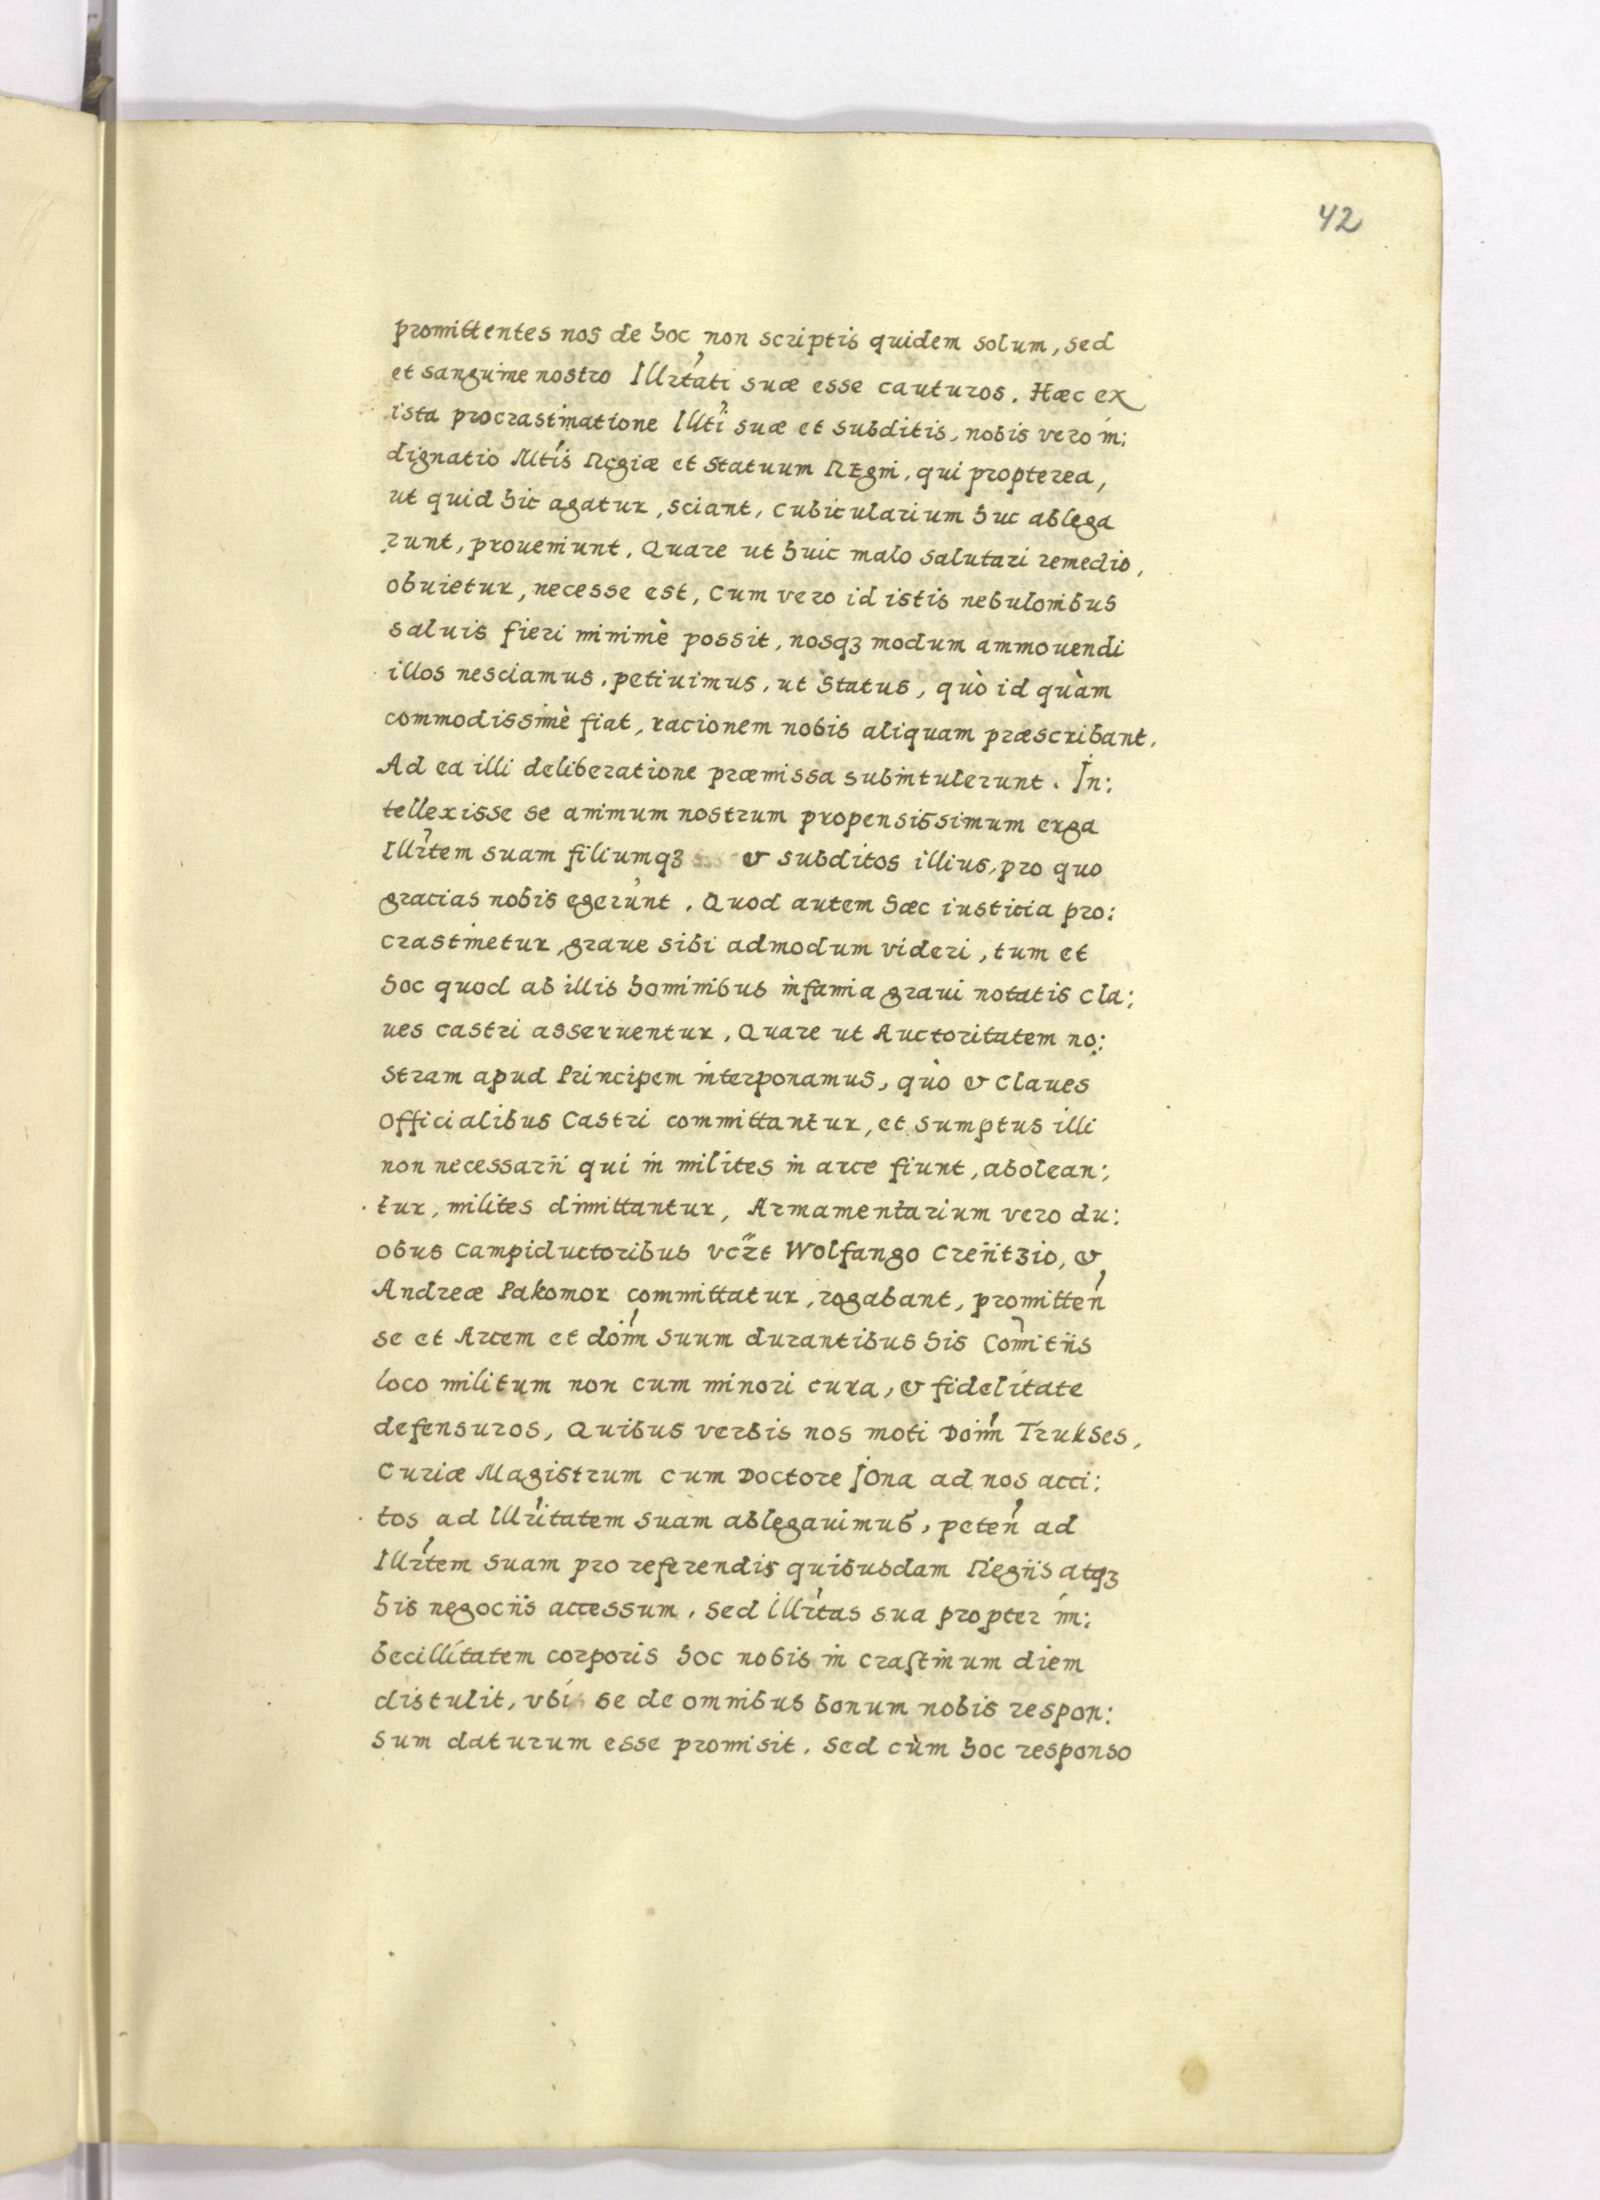 42
promittentes nos de hoc non scriptis quidem solum, sed
et sanguine nostro Illrtati suæ esse cauturos. Hæc ex
ista procrastinatione Illti suæ et subditis, nobis vero in:
dignatio Mtis Regiæ et Statuum REgni, qui propterea,
ut quid hic agatur, sciant, cubicularium huc ablega
runt, proueniunt. Quare ut huic malo salutari remedio,
obuietur, necesse est, Cum vero id istis nebulonibus
saluis fieri minimè possit, nosqȝ modum ammouendi
illos nesciamus, petiuimus, ut Status, quò id quàm
commodissimè fiat, racionem nobis aliquam præscribant.
Ad ea illi deliberatione præmissa subintulerunt. In:
tellexisse se animum nostrum propensissimum erga
Illrtem suam filiumqȝ & subditos illius, pro quo
gracias nobis egerunt. Quod autem hæc iusticia pro:
crastinetur, graue sibi admodum videri, tum et
hoc quod ab illis hominibus infamia graui notatis cla:
ues castri asseruentur. Quare ut Auctoritatem no:
stram apud Principem interponamus, quò & Claues
Officialibus Castri committantur, et sumptus illi
non necessarii qui in milites in arce fiunt, abolean:
tur, milites dimittantur, Armamentarium vero du:
obus Campiductoribus vcrt Wolfango Creñtzio, &
Andreæ Pakomor committatur, rogabant, promitten
se et Arcem et dom̃ suum durantibus his Comitiis
loco militum non cum minori cura, & fidelitate
defensuros, Quibus verbis nos moti Doim Trukses,
Curiæ Magistrum cum Doctore Jona ad nos acci:
tos ad Illritatem suam ablegauimus, peten ad
Illrtem suam pro referendis quibusdam Regiis atqȝ
his negociis accessum. Sed Illrtas sua propter im:
becillitatem corporis hoc nobis in craſtinum diem
distulit, vbi se de omnibus bonum nobis respon:
sum daturum esse promisit. Sed cùm hoc responso